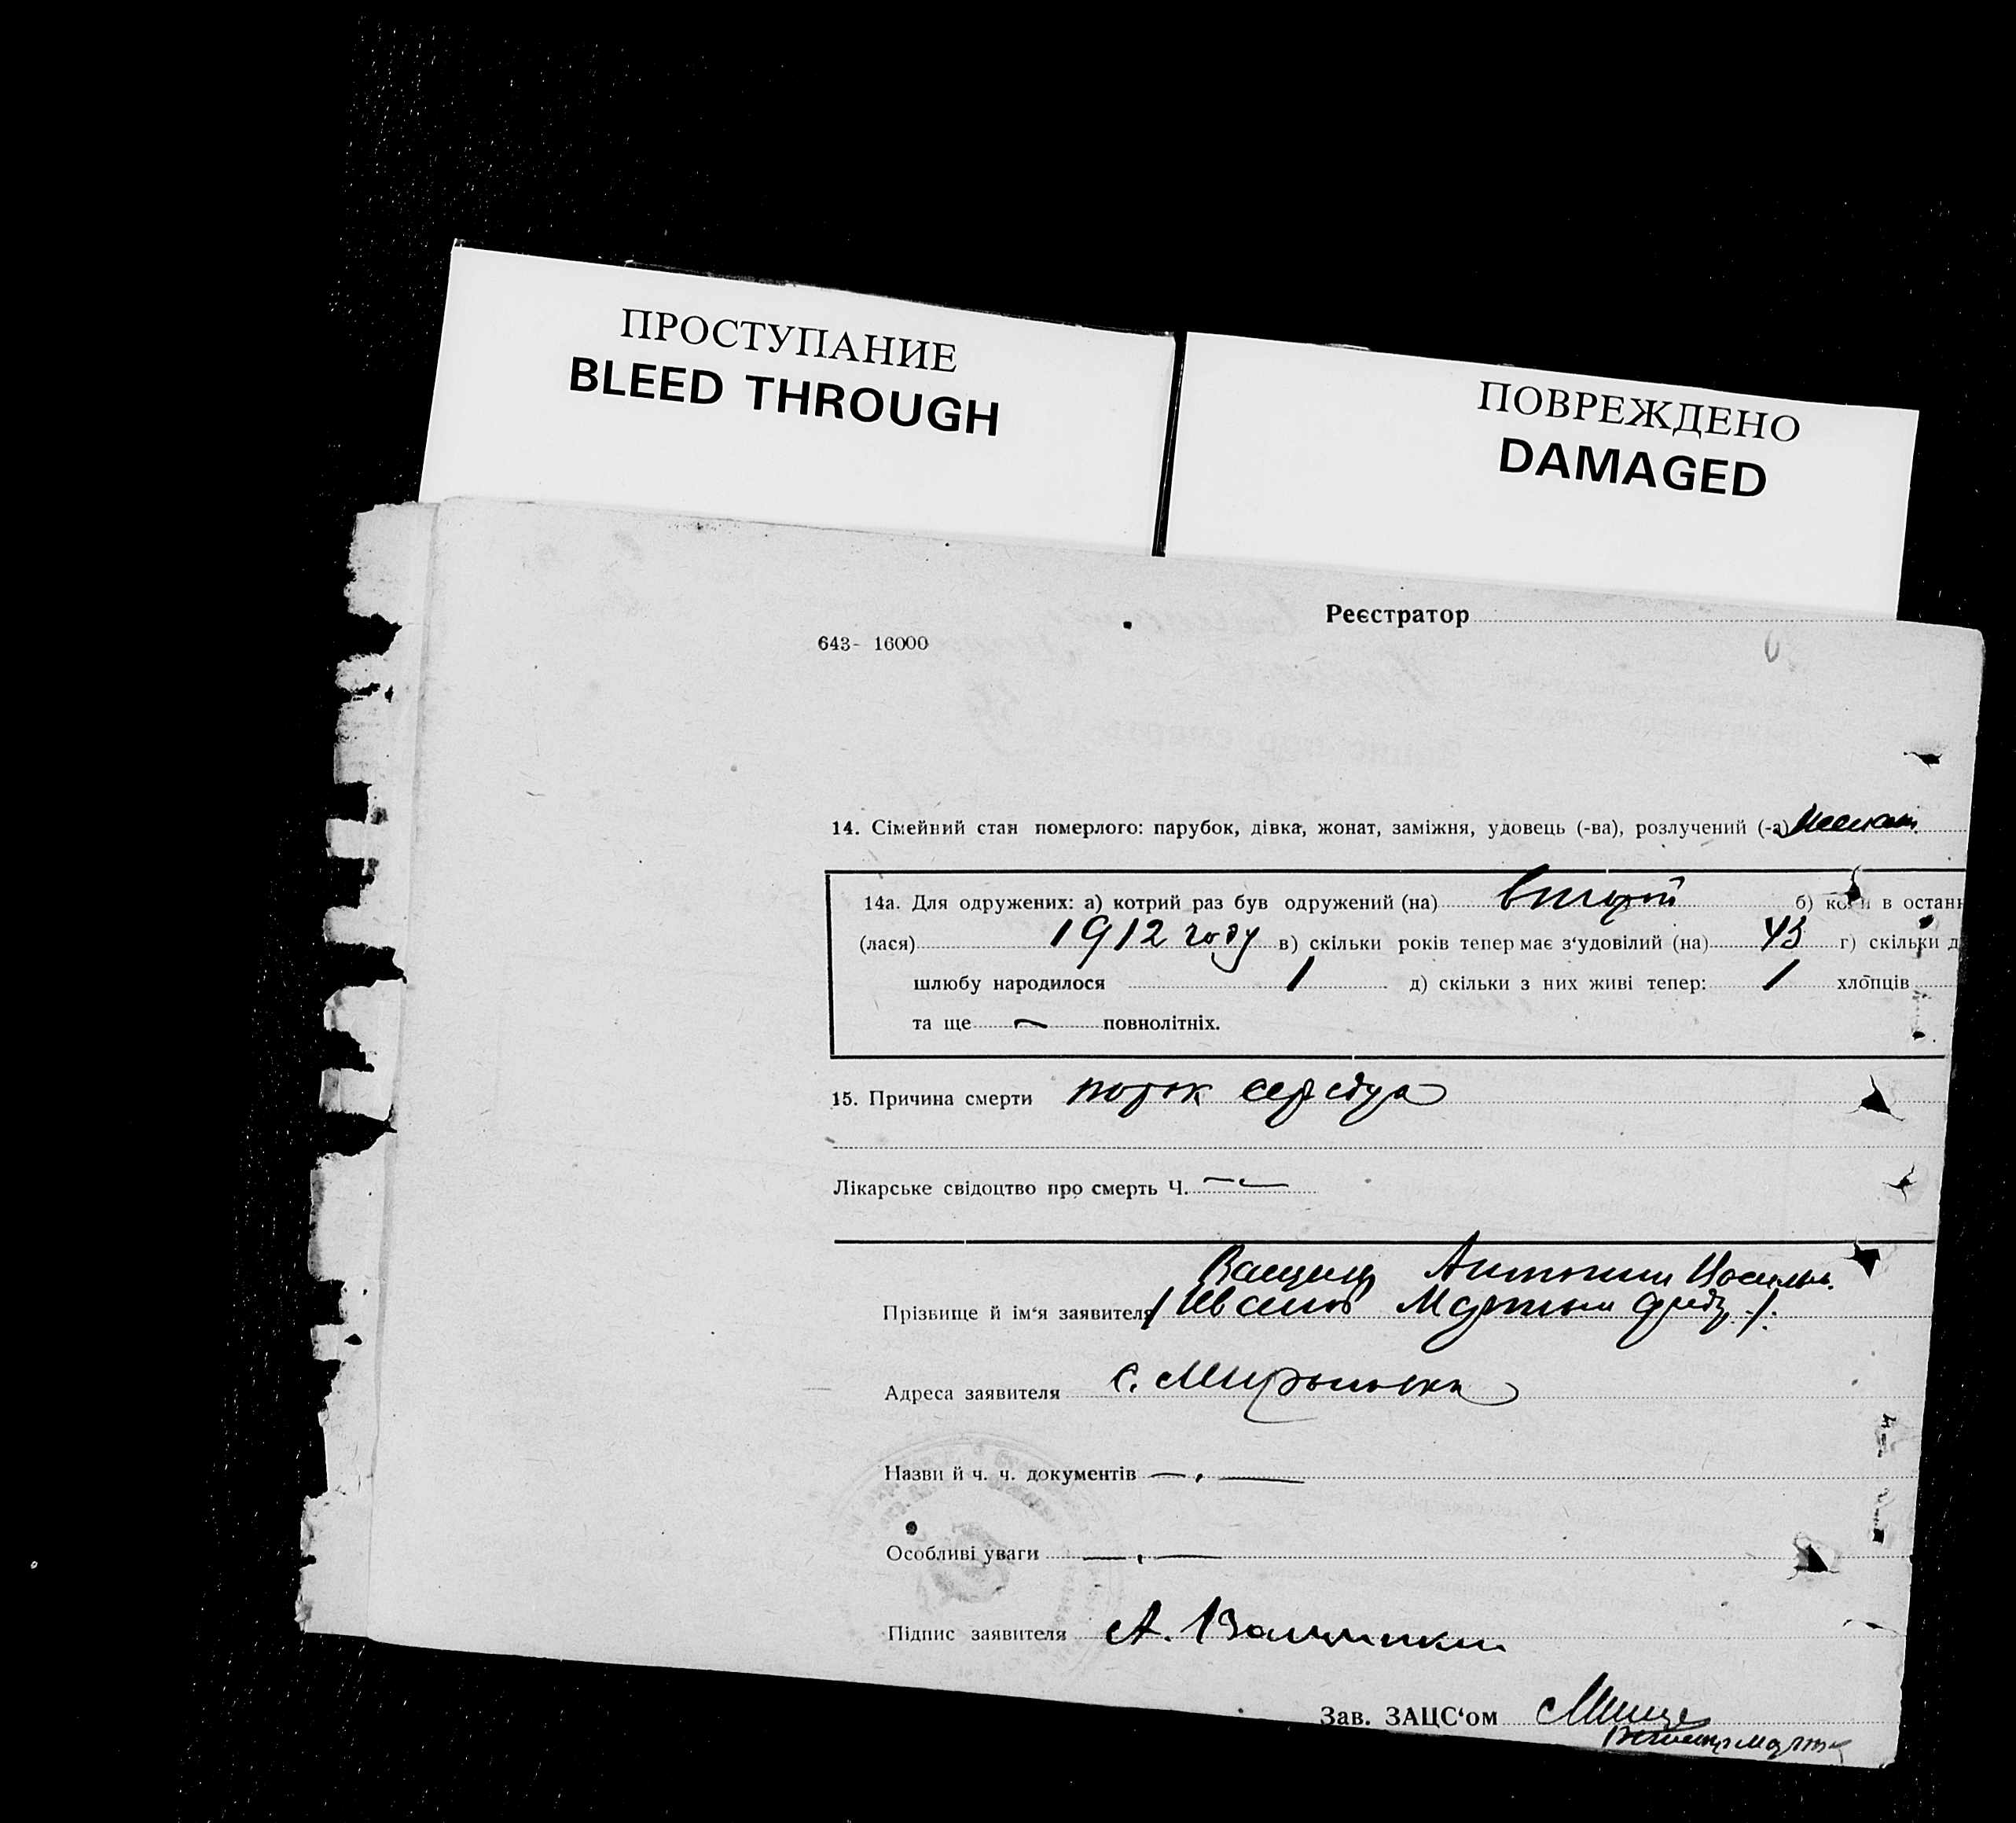 ПРОСТУПАНИЕ
BLEED THROUGH
ПОВРЕЖДЕНО
DAMAGED
Реєстратор
643- 16000
14. Сімейний стан померлого: парубок, дівка, жонат, заміжня, удовець (-ва), розлучений (-а)
14а. Для одружених: а) котрий раз був одружений (на) второй б) коли в останн
(лася) 1912 году в) скільки років тепер має з‘удовілий (на) 43 г) скільки д
шлюбу народилося 1 д) скільки з них живі тепер: 1 хлопців
та ще — повнолітніх.
15. Причина смерти порок сердца
Лікарське свідоцтво про смерть Ч. —
Прізвище й ім‘я заявителя
Адреса заявителя с.
Назви й ч. ч. документів —
Особливі уваги —
Підпис заявителя А.
Зав. ЗАЦС‘ом